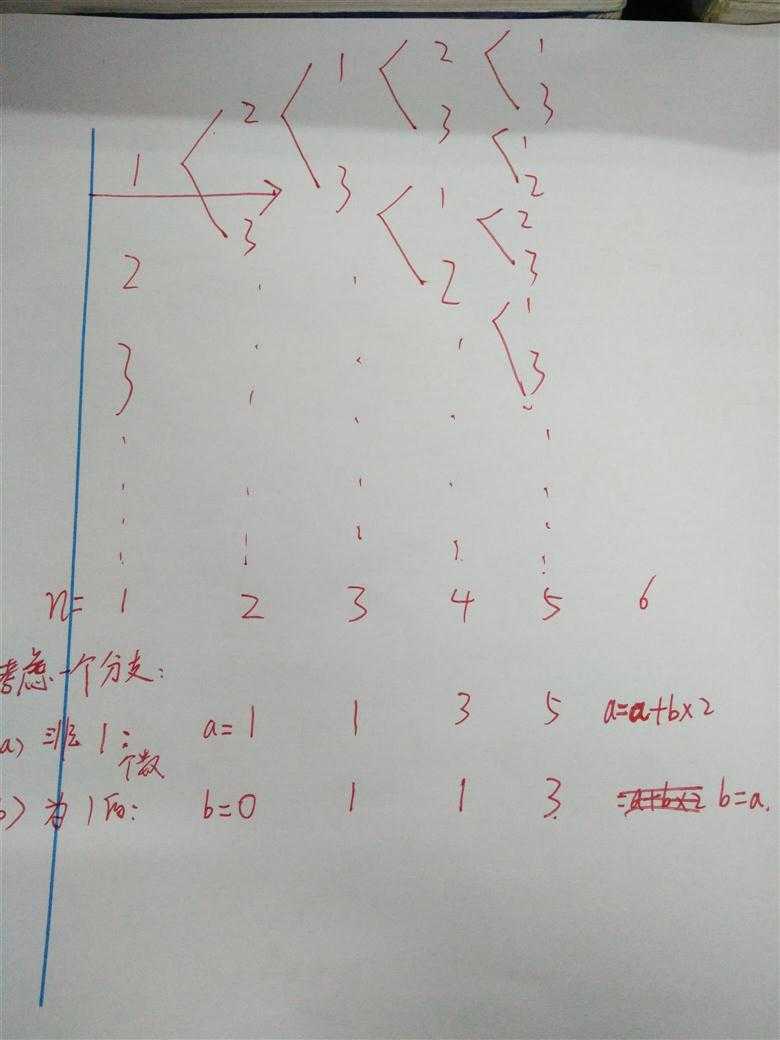 1 2 1 2 1
3 3 3 3
1
2
1 2
3
2
1
3
2
3
n= 1 2 3 4 5 6
考虑一个分支:
a) 非1: a=1 1 3 5 a=a+b×2
个数
b) 为1的: b=0 1 1 3 =a+b×2 b=a.